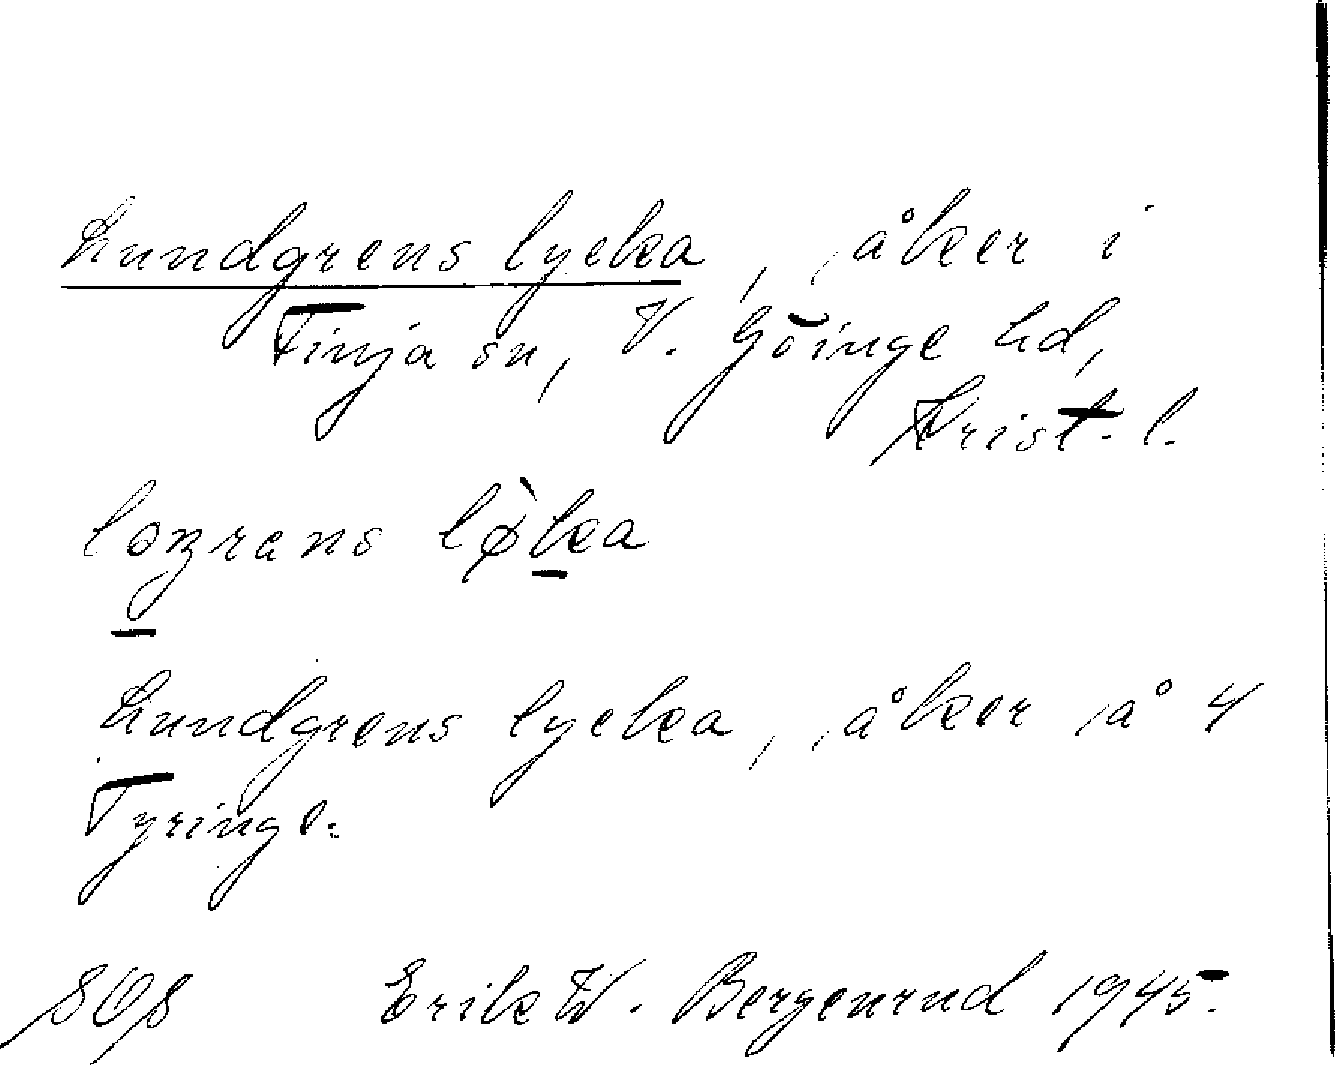 Lundgrens lycka, åker i
Finja sn, V. Göinge hd,
Krist. l.
løka
Lundgrens lycka, åker å 4
Tyringe.
Erik W. Bergenrud 1945.